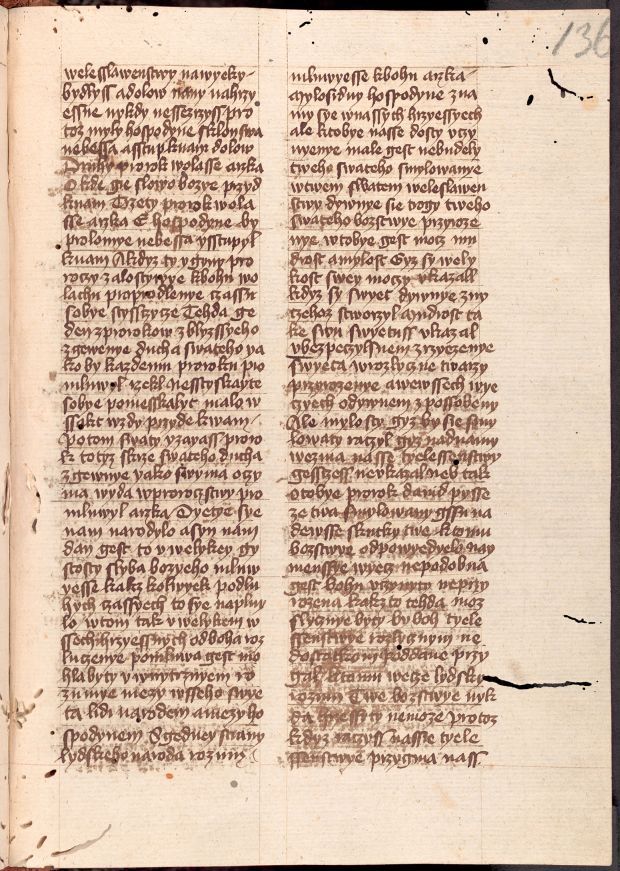 136
welesslawenstwy nawyeky
bydlyss adolow nany nahrzy
essne nykdy nessezrzyss pro
toz myly hospodyne sklonswa
nebessa asstup knam dolow
Druhy prorok wolasse arzka
O kde gie slowo bozye przyd
knam Trzety prorok wola
sse arzka E hospodyne by
prolomye nebessa ysstupyl
knam Akdyz ty ygyny pro
roczy zalostywye kbohu wo
lachu przprodlenye czassu
sobye stysstycze Tehda ge
den zprorokow zblyzssyeho
zgewenye ducha swateho ya
ko by kazdemu proroku pro
mluwyl rzekl nesstyskayte
sobye pomesskalyt malo w
ssakt wzdy przyde kwam
Potom swaty yzayass proro
k totyz skrze swateho ducha
zgewnye yako swyma oczy
ma wyda wprorocstwy pro
mluwyl arzka Dyetye sye
nam narodylo asyn nam
dan gest to vwelykey gy
stosty slyba bozyeho mluw
yesse kakz kolwyek podlu
hych czassyech to sye naplny
lo wtom tak vwelykem w
ssech hrzyessnych odboha roz
luczenye pomluwa gest mo
hla byty vwnytrznyem ro
zumye mezy wsseho swye
ta lidi narodem amezy ho
spodynem Sgedney strany
lydskeho naroda rozum
mluwyesse kbohu arzka
Mylosrdny hospodyne zna
my sye wnassych hrzyessyech
ale ktobye nasse dosty vczy
nyenye male gest nebudely
tweho swateho smylowanye
wtwem swatem weleslawen
stwy dywnye sie trogy tweho
swateho bozstwye przyrozie
nye wtobye gest mocz mu
drost amylost Gyz sy wely
kost swey moczy vkazall
kdyz sy swyet dywnye zny
czehoz stworzyl Mudrost ta
ke swu swyetuss vkazal
vbezpeczyl snem zrzyezenye
swyeta wrozlyczne twarzy
przyrozenye awewssech wye
czyech odywnem zpossobeny
Ale mylosty gyz by sie smy
lowaty raczyl gyz nadnamy
wezma nasse tyelessenstwy
gesstzess nevkazal neb tak
otobye prorok dawid pysse
ze twa smylowany gssu na
dewsse skutky twe ktomu
bozstwye odpowyedyelo nay
mensse wyecz nepodobna
gest bohu vczynyty wprzy
rozena kakz to tehda moz
slyczne byty by boh tyele
ssenstwye rozlycznym ne
dostatkom poddane przy
gal ktomu wecze lydsky
rozum Twe bozstwye nyk
da hrzessyty nemoze protoz
kdyz raczyss nasse tyele
ssenstwye przygma nass